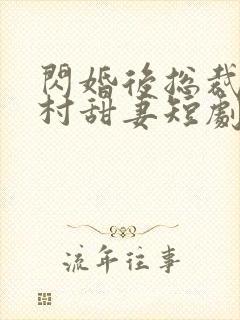 閃婚後总裁
村甜妻短劇
流年往事